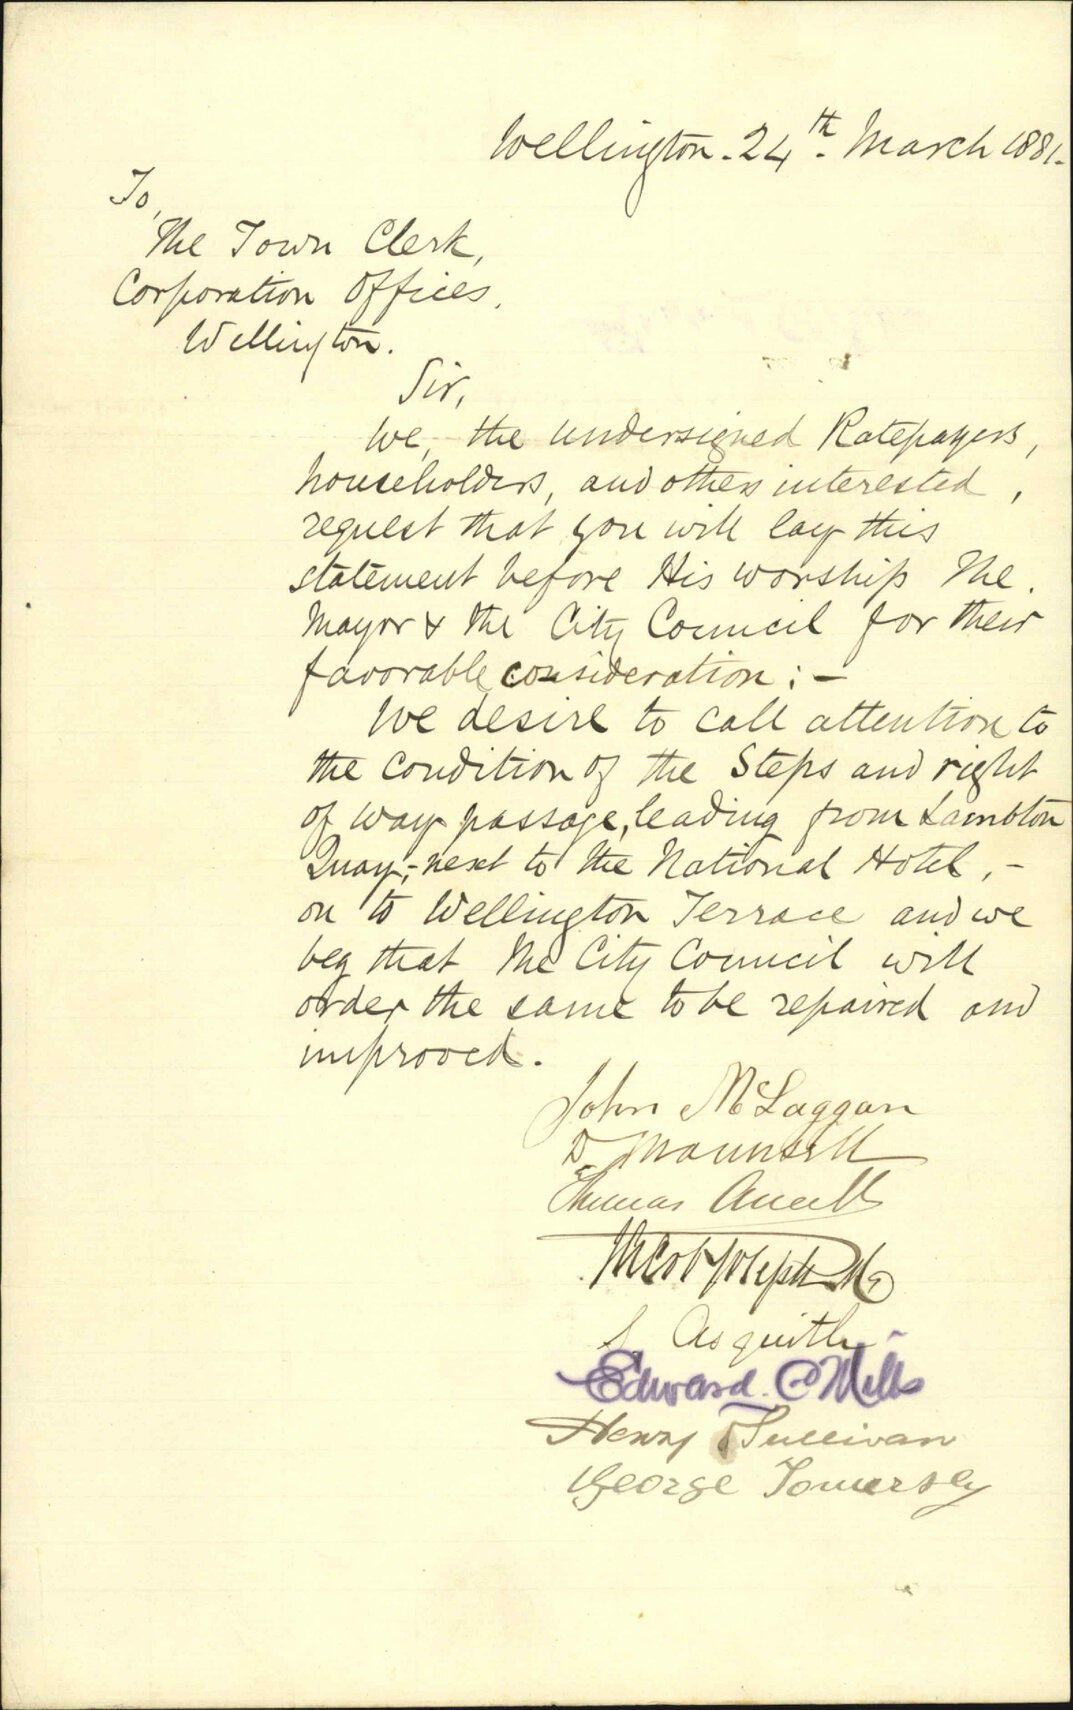 Wellington - 24th. March 1881.
To,
The Town Clerk,
Corporation Offices,
Wellington.
Sir,
We, the undersigned Ratepayers,
householders, and others interested,
request that you will lay this
statement before His Worship The
Mayor & the City Council for their
favorable consideration: -
We desire to call attention to
the condition of the Steps and right
of way passage, leading from Lambton
Quay, - next to the National Hotel, -
on to Wellington Terrace and we
beg that the City Council will
order the same to be repaired and
improved.
John McLaggan
D. Maunsell
Thomas
Jacob Joseph & Co
Asquith
Edward Mills
Henry Sullivan
George